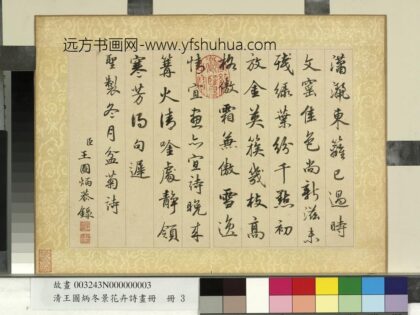 远方书画网-www.yfshuhua.com
瀟灑東籬已過時
文窗佳色尚新滋未
殘綠葉紛千點初
放金英簇幾枝高
格傲霜兼傲雪逸
情宜畫亦宜詩晚來
篝火清唫處靜領
寒芳得句遲
聖製冬月盆菊詩
臣王圖炳恭錄
故畫 003243N000000003
清王圖炳冬景花卉詩畫冊 冊 3